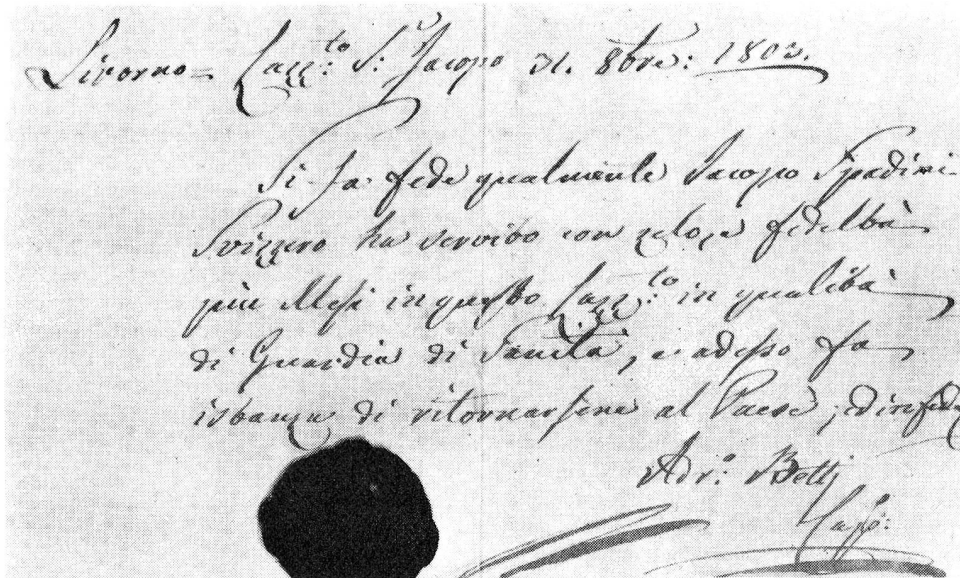 Livorno = Lazz:to S: Jacopo 31. 8bre: 1803.
Si fa fede qualmente Jacopo Spadini
Svizzero ha servito con zelo, e fedeltà
più Mesi in questo Lazz:to in qualità
di Guardia di Sanità, e adesso fa
istanza di ritornarsene al Paese; ed in fede
Adr:o Betti
Cap:o